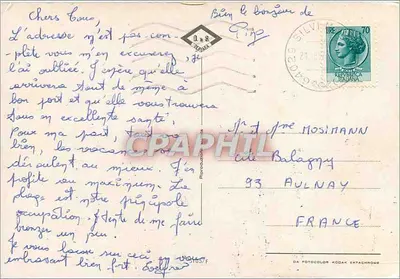 Chers tous,
L'adresse n'est pas com-
plète vous m'en excuserez
j'ai oublié. J'espère qu'elle
arrivera tout de même à
bon port et qu'elle vous trouvera
tous en excellente santé.
Pour ma part, tout va
bien, les vacances se
déroulent au mieux. J'en
profite au maximum. La
plage est notre principale
occupation. J'tente de me faire
bronzer un peu.
Je vous laisse sur ceci en vous
embrassant bien fort.
Bien le bonjour de
LIRE 70
Mr et Mme MOSIMANN
Cité Balagny
93 AULNAY
FRANCE
CPARAMA
DA FOTOCOLOR KODAK EKTACHROME